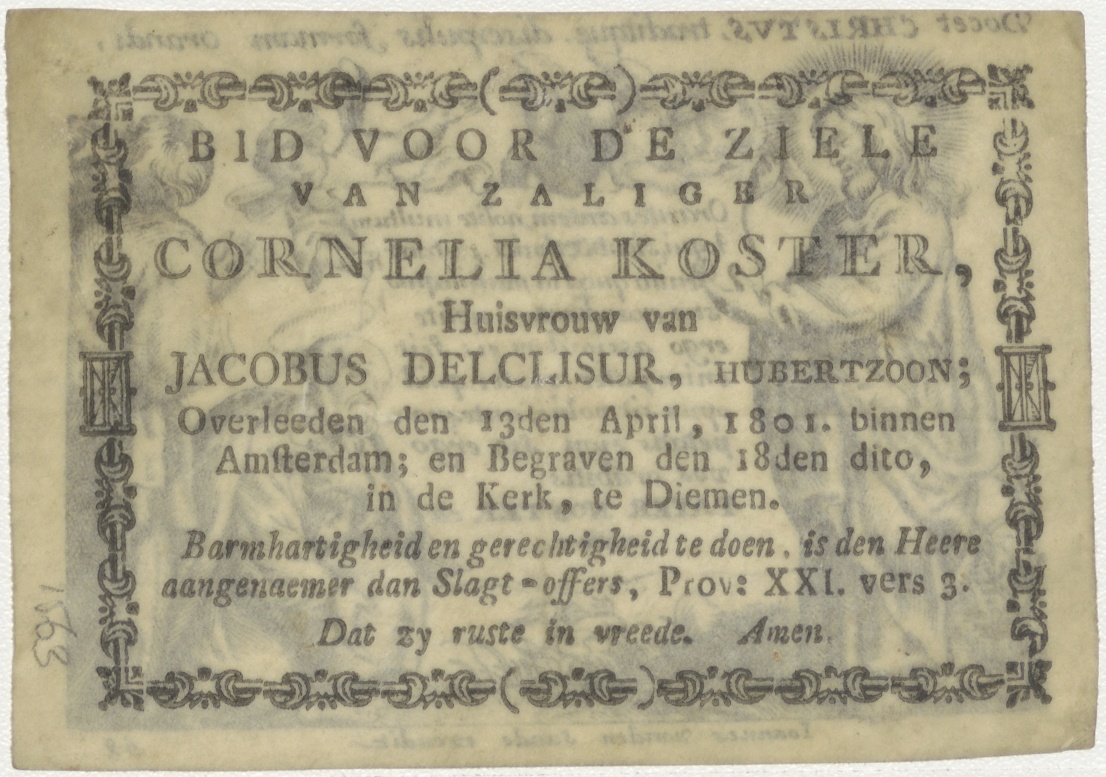 BID VOOR DE ZIELE
VAN ZALIGER
CORNELIA KOSTER,
Huisvrouw van
JACOBUS DELCLISUR, HUBERTZOON;
Overleeden den 13den April, 1801. binnen
Amsterdam; en Begraven den 18den dito,
in de Kerk, te Diemen.
Barmhartigheid en gerechtigheid te doen, is den Heere
aangenaemer dan Slagt-offers, Prov: XXI. vers 3.
Dat zy ruste in vreede. Amen.
Docet CHRISTVS, traditque discipulis formam orandi,